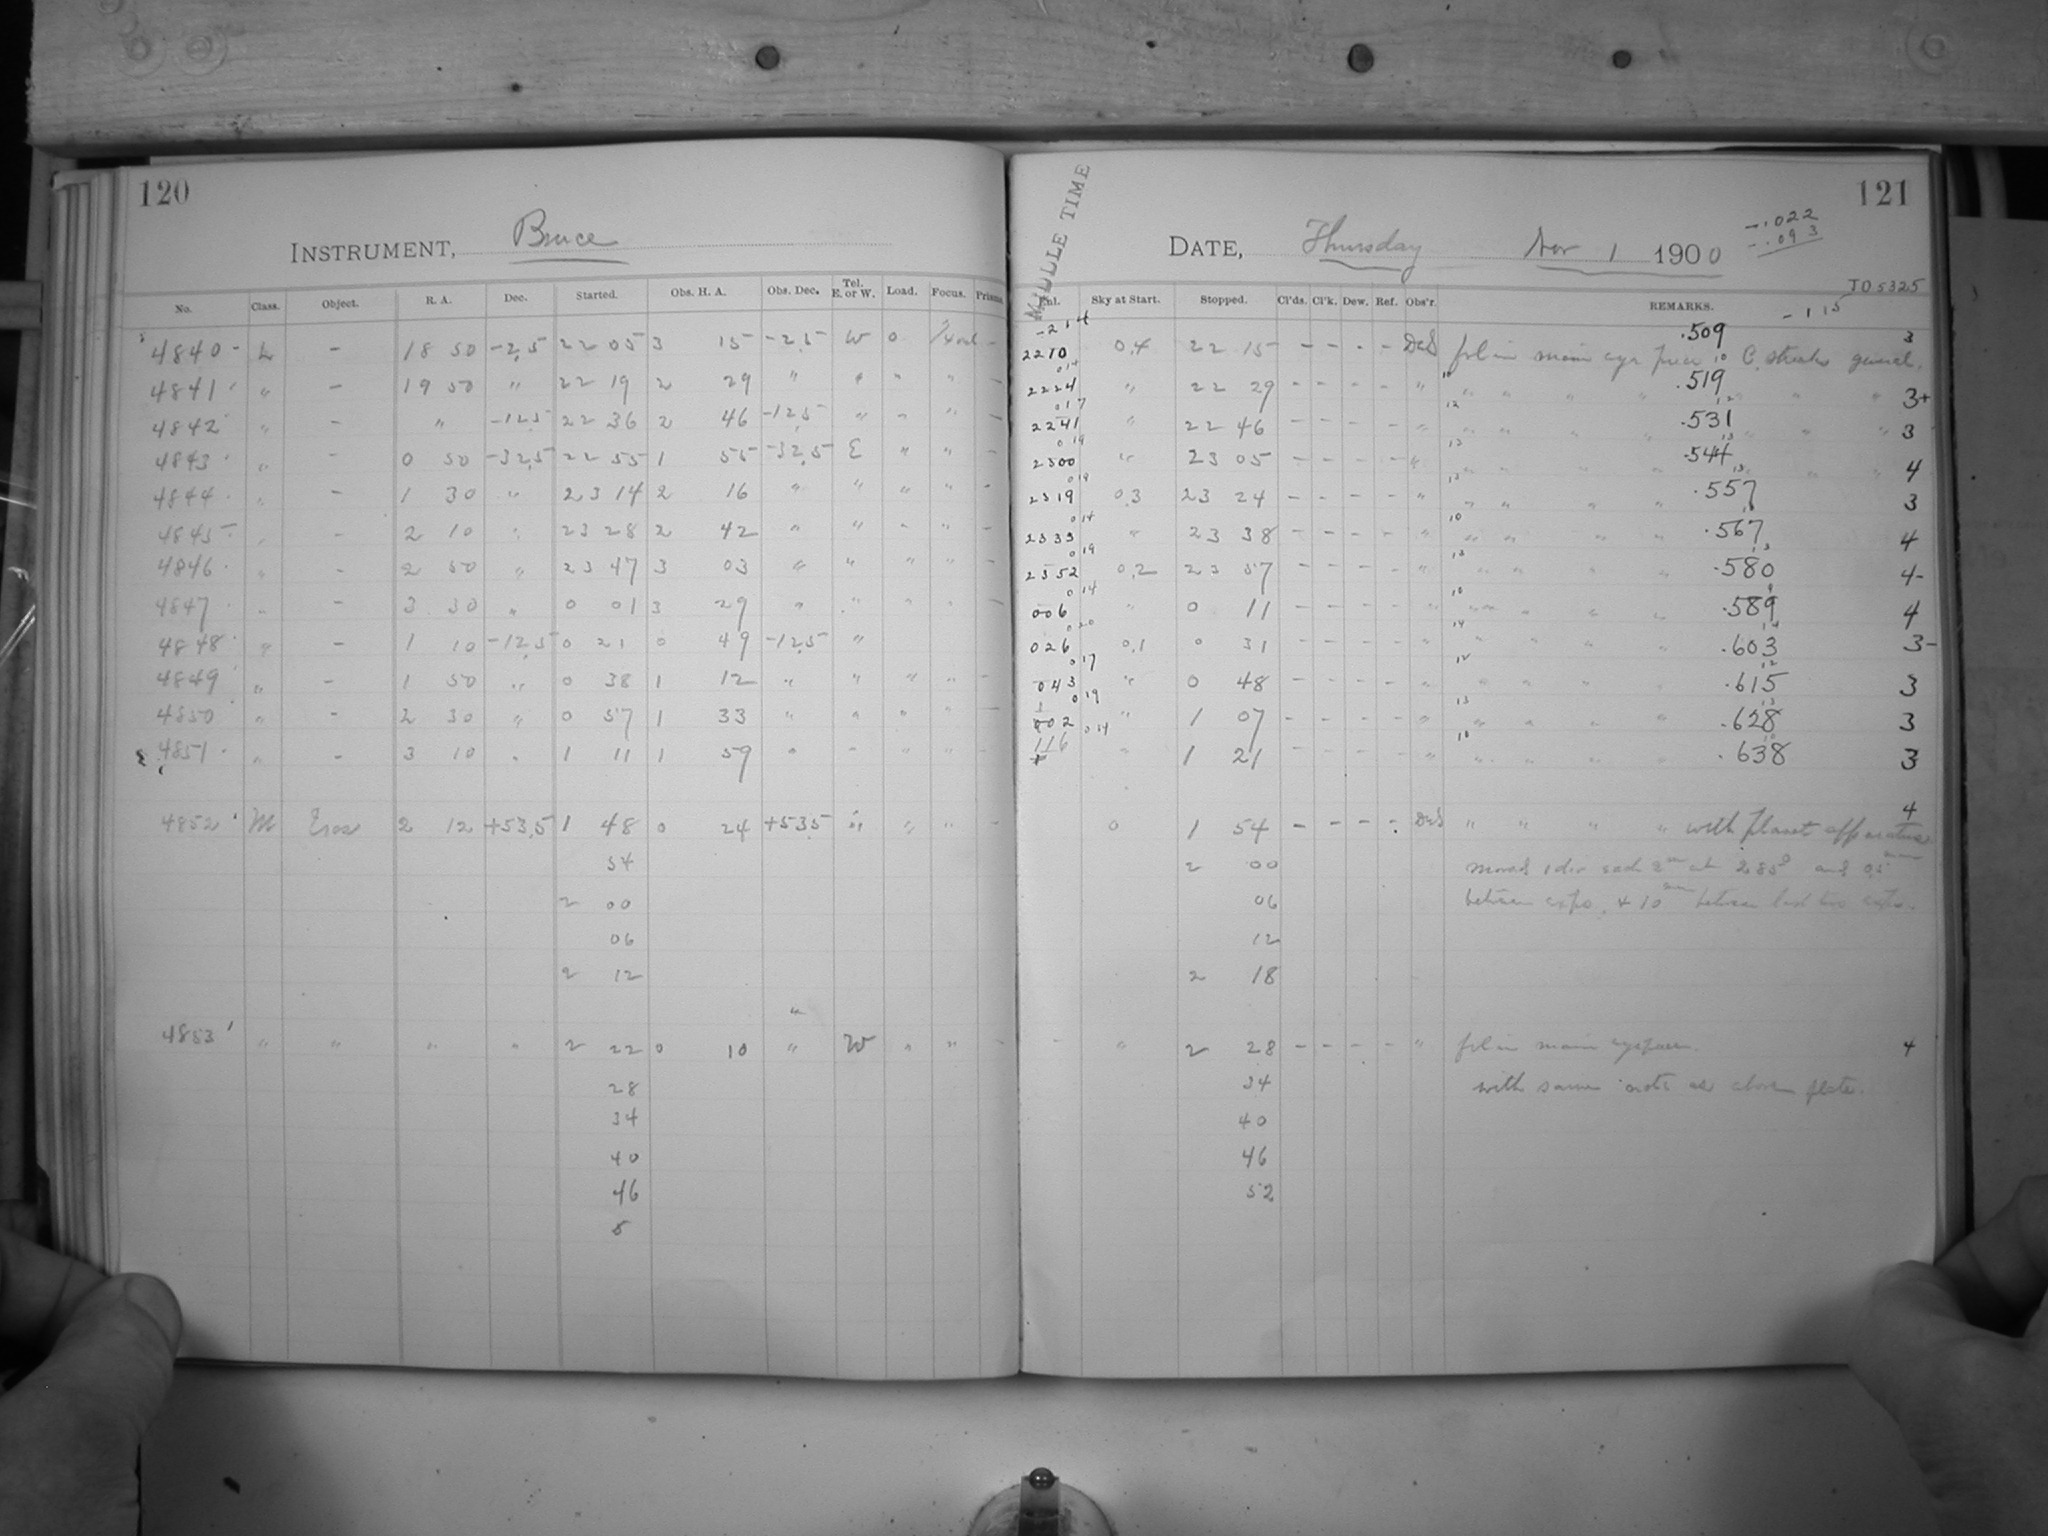 120
INSTRUMENT, Bruce
No. Class. Object. R. A. Dec. Started. Obs. H. A. Obs. Dec. Tel. E. or W. Load. Focus. Prisms
4840 - L - 18 50 -2,5 22 05 3 15 -2,5 W 0
4841 " - 19 50 " 22 19 2 29 " " " " -
4842 " - " -12,5 22 36 2 46 -12,5 " " " -
4843 " - 0 50 -32,5 22 55 1 55 -32,5 E " " -
4844 " - 1 30 " 23 14 2 16 " " " " -
4845 " - 2 10 " 23 28 2 42 " " " " -
4846 " - 2 50 " 23 47 3 03 " " " " -
4847 " - 3 30 " 0 01 3 29 " " " " -
4848 " - 1 10 -12,5 0 21 0 49 -12,5 "
4849 " - 1 50 " 0 38 1 12 " " " " -
4850 " - 2 30 " 0 57 1 33 " " " " -
4851 " - 3 10 " 1 11 1 59 " " " " -
4852 M Eros 2 12 +53,5 1 48 0 24 +53,5 " " " -
54
2 00
06
2 12
"
4853 " " " " 2 22 0 10 " W " " -
28
34
40
46
5
121
MIDDLE TIME
DATE, Thursday Nov 1 1900
-.022
-.093
JD 5325
-115
Sky at Start. Stopped. Cl'ds. Cl'k. Dew. Ref. Obs'r. REMARKS.
-214
2210 0,4 22 15 - - - - DeS fol in main eye piece 10 C. streaks general, .509 3
014
2224 " 22 29 - - - - " 10 " " " " .519 " " " 3+
017
2241 " 22 46 - - - - " 12 " " " " .531 " " " 3
019
2300 " 23 05 - - - - " 13 " " " " .544 " " " 4
019
2319 0,3 23 24 - - - - " 13 " " " " .557 3
014
2333 " 23 38 - - - - " 10 " " " " .567 4
019
2352 0,2 23 57 - - - - " 13 " " " " .580 4-
014
006 " 0 11 - - - - " 10 " " " " .589 4
020
026 0,1 0 31 - - - - " 14 " " " " .603 3-
017
043 " 0 48 - - - - " 12 " " " " .615 3
019
102 " 1 07 - - - - " 13 " " " " .628 3
014
116 " 1 21 - - - - " 10 " " " " .638 3
0 1 54 - - - - DeS " " " " with planet apparatus 4
2 00 moved 1 div each 2m at 285° and 0,5mm
06 between expo, & 10mm between last two expo.
12
2 18
- " 2 28 - - - - " fol in main eyepiece. 4
34 with same note as above plate.
40
46
52